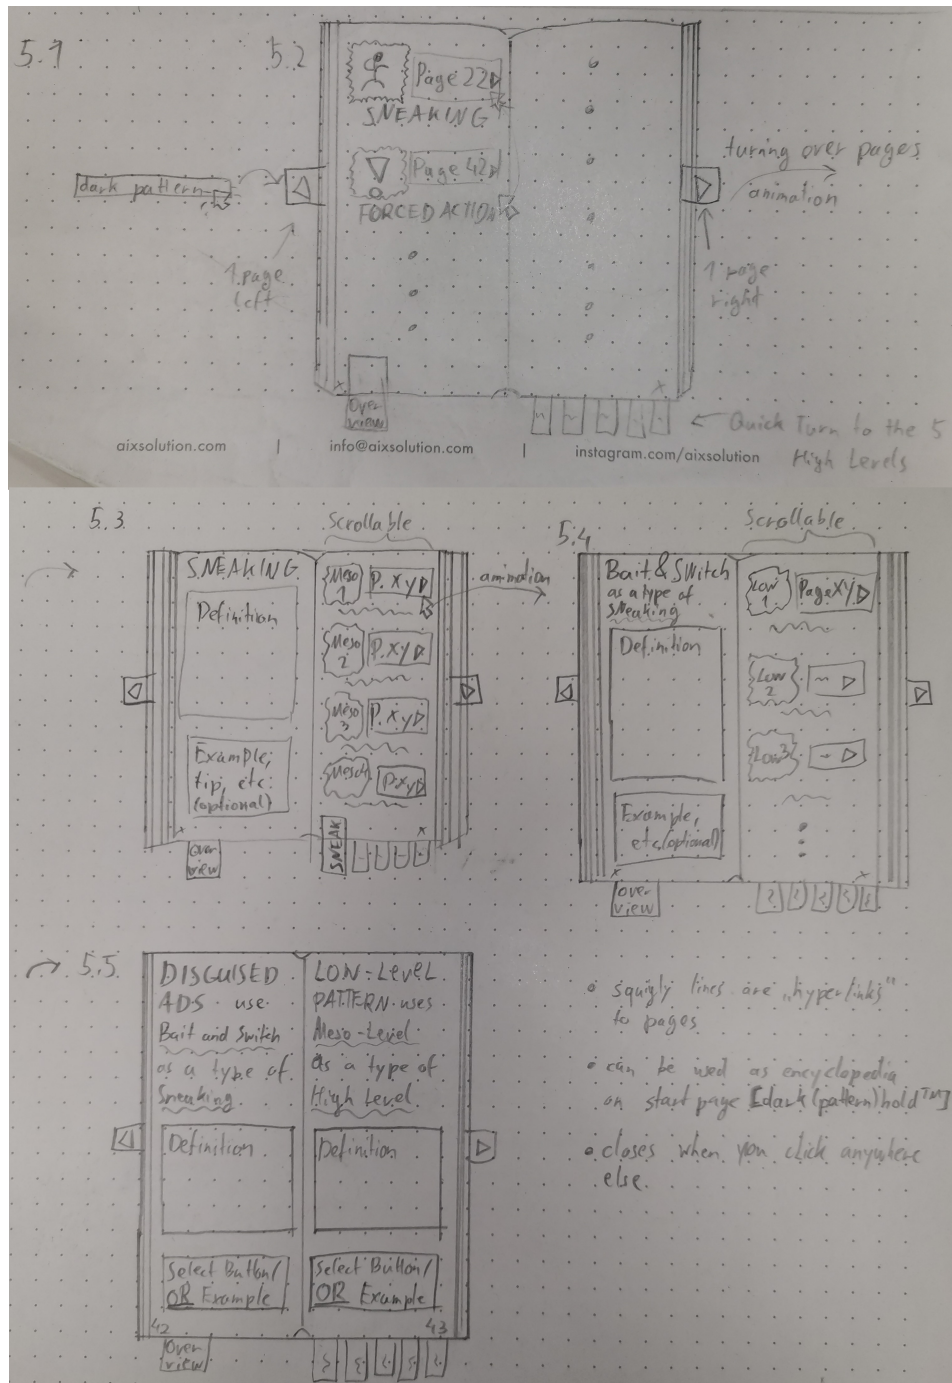 5.1
5.2
Page 22
SNEAKING
Page 42
FORCED ACTION
dark pattern
1 page
left
turning over pages
animation
1 page
right
Over
view
Quick Turn to the 5
High Levels
aixsolution.com | info@aixsolution.com | instagram.com/aixsolution
5.3
Scrollable
SNEAKING
Definition
Example,
tip, etc.
(optional)
Meso
1
P. XY
Meso
2
P. XY
Meso
3
P. XY
Meso4
P. XY
animation
Over
view
SNEAK
5.4
Scrollable
Bait & Switch
as a type of
Sneaking
Definition
Example,
etc. (optional)
Low
1
Page XY
Low
2
Low3
over
view
5.5.
DISGUISED
ADS use
Bait and Switch
as a type of
Sneaking.
Definition
Select Button/
OR Example
42
LOW-LEVEL
PATTERN uses
Meso-Level
as a type of
High Level.
Definition
Select Button/
OR Example
43
Over
view
squigly lines are „hyperlinks"
to pages
can be used as encyclopedia
on start page [dark(pattern)hold™]
closes when you click anywhere
else.